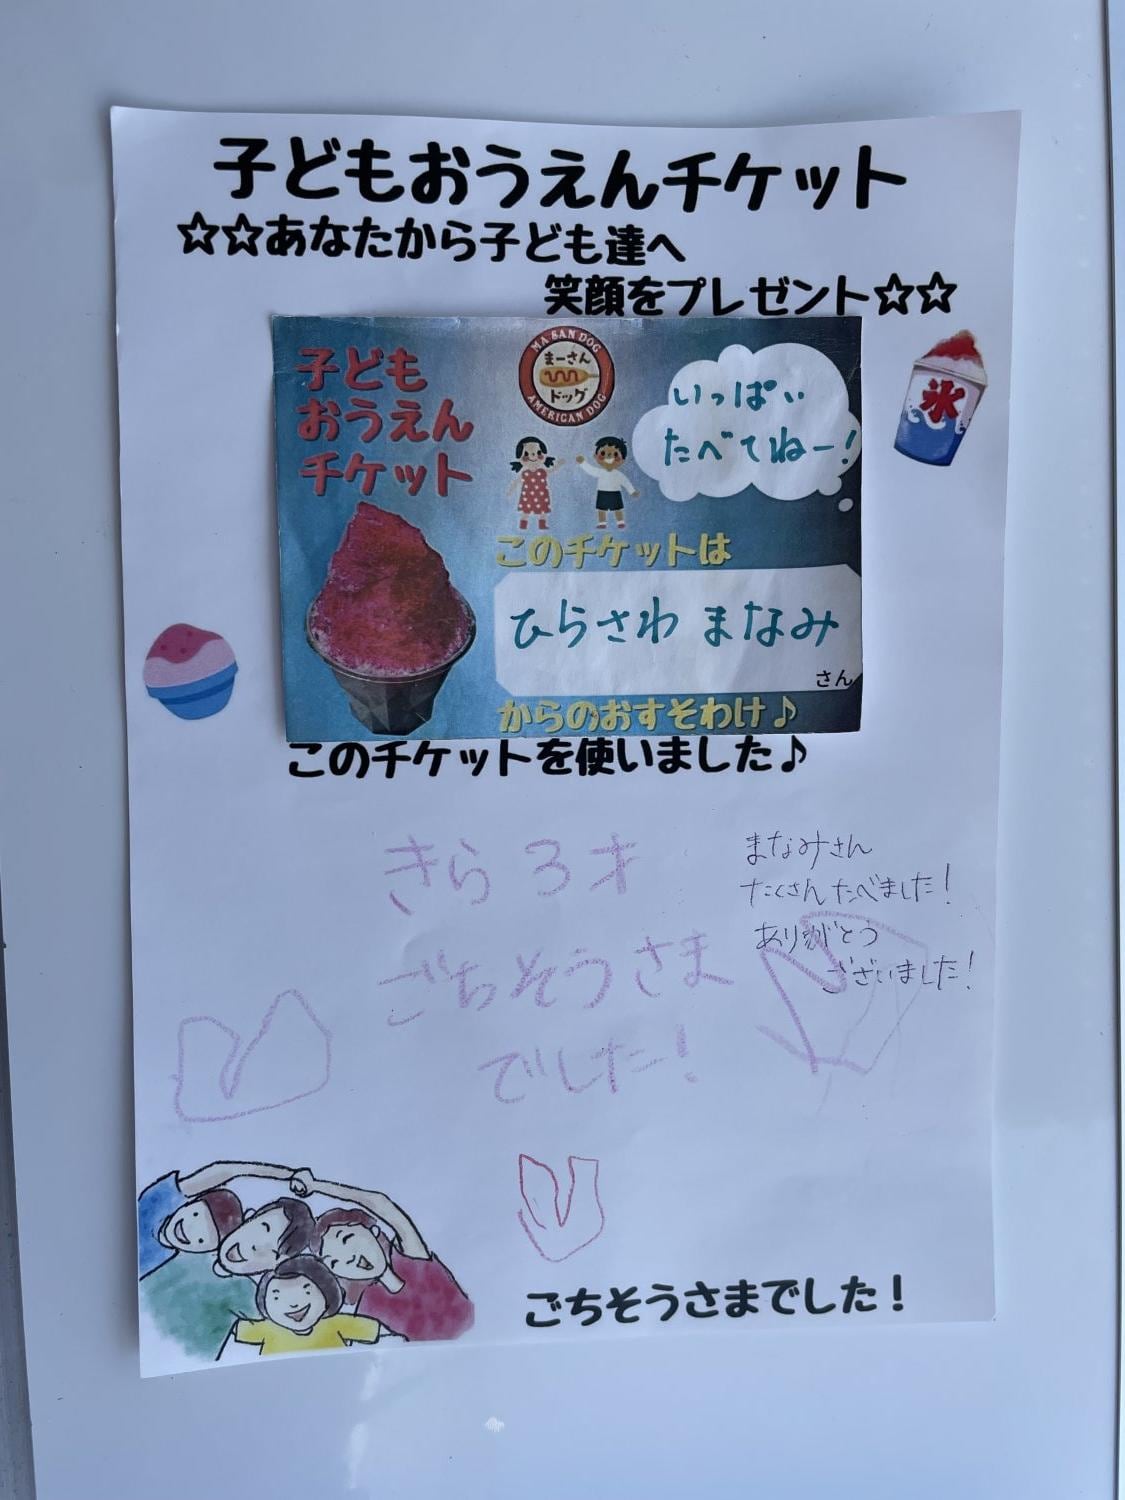 子どもおうえんチケット
☆☆あなたから子ども達へ
笑顔をプレゼント☆☆
子ども
おうえん
チケット
MA SAN DOG
まーさん
ドッグ
AMERICAN DOG
いっぱい
たべてねー!
氷
このチケットは
ひらさわ まなみ
さん
からのおすそわけ♪
このチケットを使いました♪
きら 3才
ごちそうさま
でした!
まなみさん
たくさんたべました!
ありがとう
ございました!
ごちそうさまでした!